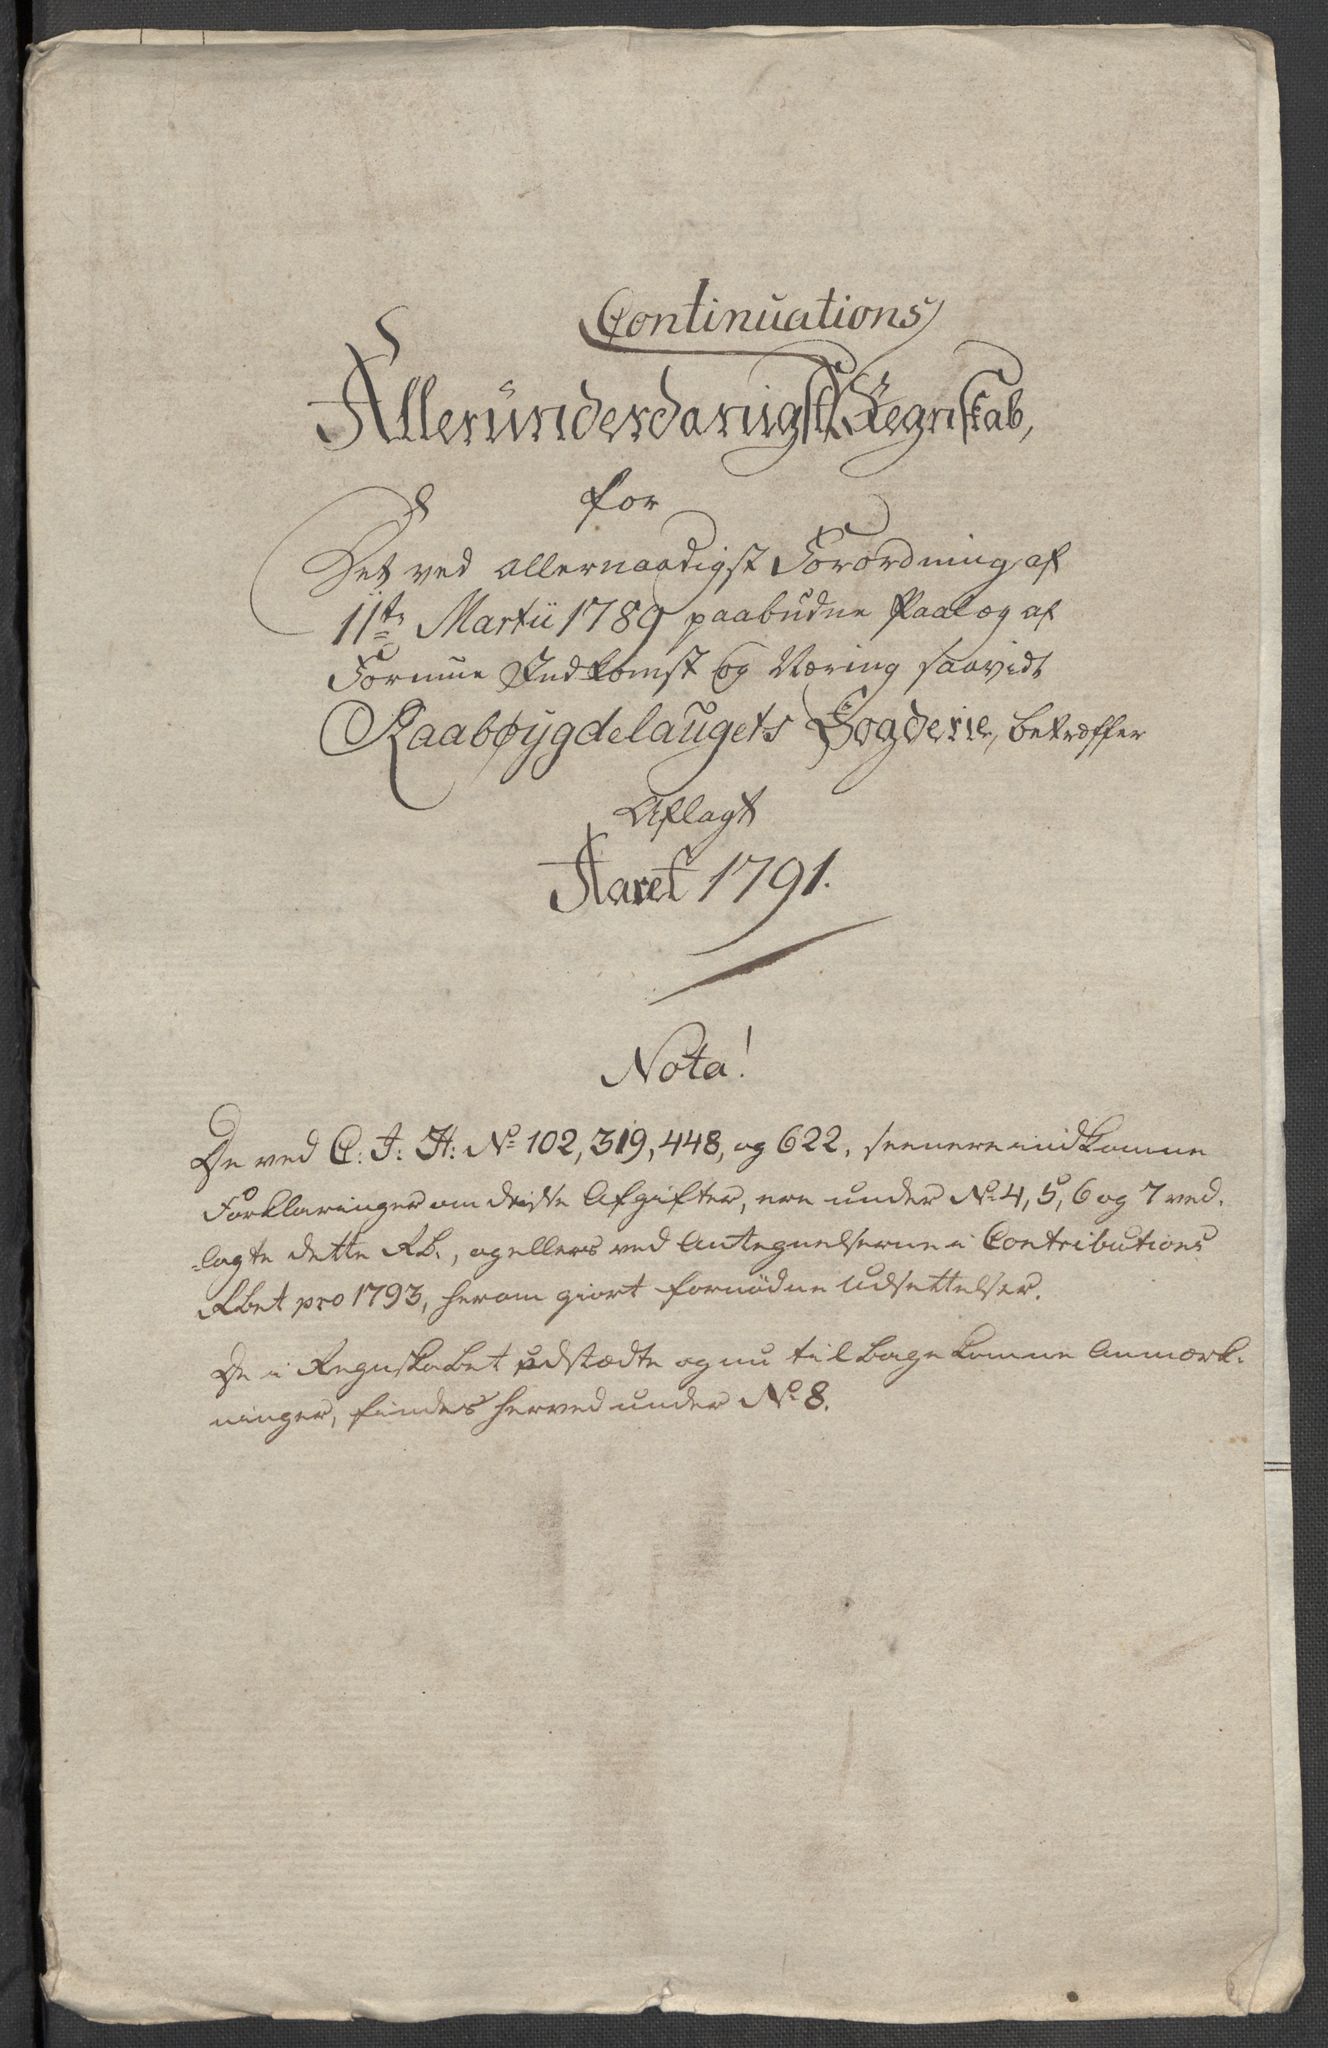 Continuations
Allerunderdanigst Regnskab,
for
Det ved allernaadigst Forordning af
11te Martii 1789 paabudne Paalæg af
Formue Indkomst og Næring saavidt
Raabøygdelaugets Fogderie, betræffer
Aflagt
Aaret 1791.
Nota!
De ved C: I: H: No 102, 319, 448, og 622, seenere indkomne
Forklaringer om disse Afgifter, ere under No 4, 5, 6 og 7 ved-
lagte dette RB., og ellers ved Antegnelserne i Contributions
Rbet pro 1793, herom giort fornødne Udsettelser.
De i Regnskabet udstædte og nu tilbagekomne Anmærk-
ninger, findes herved under No 8.